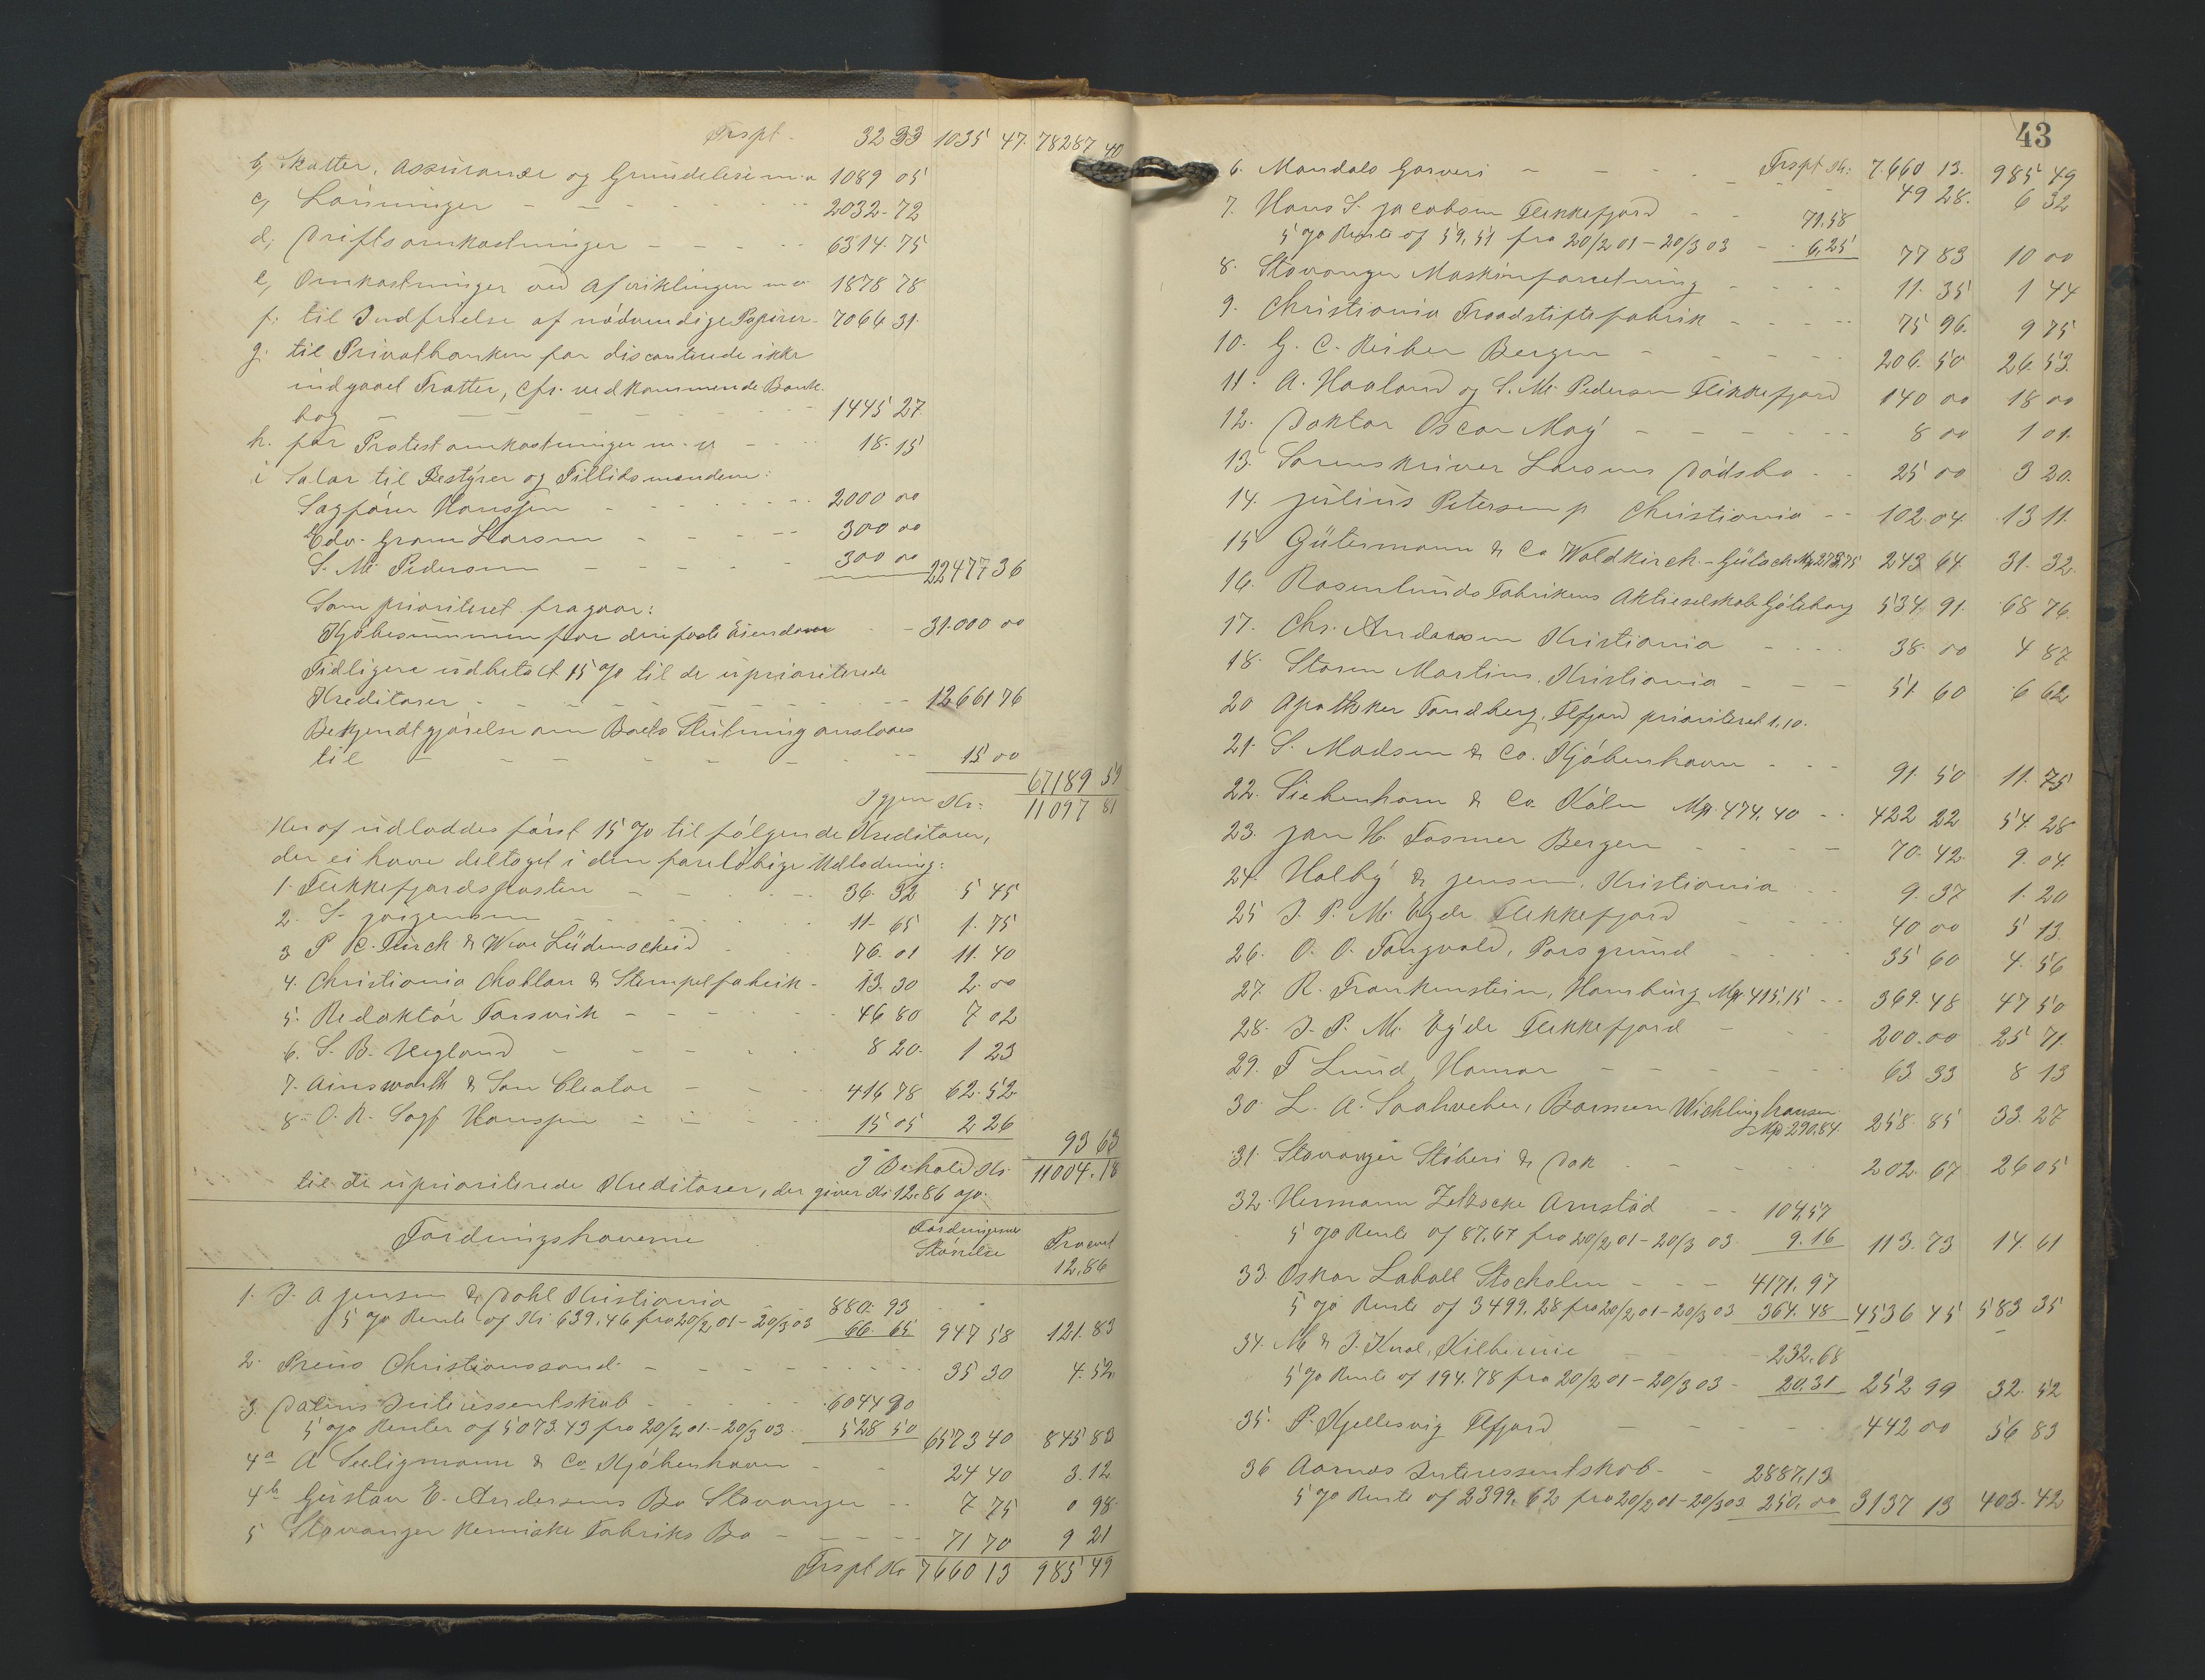 Trspt. 32 33 1035 47. 78287 40
b, Skatter, Assurance og Grundleie m. v 1089 05
c, Lønninger - - - - - 2032-72
d; Driftsomkostninger - - - - 6314.75
e, Omkostninger ved Afviklingen m v 1878 78
f. til Indfrielse af nødvendige Papirer - 7064 31.
g. til Privatbanken for discounterede ikke
indgaaet Tratter, cfr. vedkommende Bank-
bog - - - - - - 1445 27
h. for Protestomkostninger m. v - - - 18.15
i Salær til Bestyrer og Tillidsmændene:
Sagfører Hanssen - - - - - 2000 00
Edv. Gram Larsen - - - - - 300 00
S. M. Pedersen - - - - - 300 00 22477 36
Som prioriteret fragaar:
Kjøbesummen for den faste Eiendom - - 31.000 00
Tidligere udbetalt 15 % til de uprioriterede
Kreditorer - - - - - - - 12661 76
Bekjendtgjørelse om Boets Slutning anslaaes
til - - - - - - - 15 00
67189 59
Igjen Kr: 11097 81
Heraf udloddes først 15 % til følgende Kreditorer,
der ei have deltaget i den foreløbige Udlodning:
1. Flekkefjordsposten - - - 36. 32 5 45
2. S. Jørgensen - - - - 11- 65 1. 75
3 P. C. Turck & Wwe Lüdenscheid - 76. 01 11. 40
4. Christiania Chablon & Stempelfabrik - 13. 30 2. 00
5. Redaktør Torsvik - - - - 46 80 7 02
6. S. B. Uegland - - - - 8 20. 1 23
7. Ainsworth & Son Cleator - - - 416 78 62. 52
8. O. R. Sagf Hanssen - - - 15 05 2 26
93 63
I Behold Kr. 11004.18
til de uprioriterede Kreditorer, der giver Kr 12.86 %.
Fordringshaverne Fordringernes Størrelse Procent 12,86
1. J. A Jensen & Dahl Kristiania - - 880. 93
5 % Rente af Kr 639.46 fra 20/2 01 - 20/3 03 66. 65 947 58 121. 83
2. Preus Christianssand. - - - - - 35 30 4. 52
3. Dalens Interessentskab - - - - 6044 90
5 % Renter af 5073.43 fra 20/2 01 - 20/3 03. 528 50 6573 40 845 83
4a A Seeligmann & Co. Kjøbenhavn - - 24 40 3. 12
4b Gustav E. Andersens Bo Stavanger - - 7 75 0 98.
5 Stavanger kemiske Fabriks Bo - - - - 71 70 9 21
Trspt Kr 7660 13 985 49
43
Trspt Kr: 7.660 13. 985 49
6. Mandals Garveri - - - - 49 28. 6 32
7. Hans S. Jacobsen Flekkefjord - - 71,58
5 % Rente af 59,51 fra 20/2 01 - 20/3 03 - 6,25 77 83 10 00
8. Stavanger Maskinforretning - - - - 11. 35 1 44
9. Christiania Traadstiftsfabrik - - - - 75 96. 9 75
10. G. C. Reiber Bergen - - - - - 206. 50 26. 53
11. A. Haaland og S. M. Pedersen Flekkefjord 140 00 18 00
12. Doktor Oscar May - - - - - - 8 00 1 01.
13. Sorenskriver Larsens Dødsbo - - 25 00 3 20.
14. Julius Petersen jr Christiania - - 102.04 13 11.
15 Gütermann & Co Waldkirch - Gütach Mk 273,75 243 64 31. 32.
16. Rosenlunds Fabrikers Aktieselskab Göteborg 534. 91. 68 76.
17. Chr. Andersen Kristiania - - - - 38. 00 4 87
18. Storm Martins, Kristiania - - - 51 60 6 62
20 Apotheker Tandberg, Flfjord prioriteret 1.10.
21. S. Madsen & Co. Kjøbenhavn - - - 91. 50 11. 75
22. Siebenhorn & Co Köln Mk. 474,40 - - 422 22 54. 28
23. Jan H. Fasmer Bergen - - - - 70. 42. 9. 04.
24. Halby & Jensen, Kristiania - - 9. 37 1. 20
25 J. P. M. Eyde Flekkefjord - - - 40 00 5 13.
26. O. O. Tangvald, Porsgrund - - - - 35 60 4. 56
27. R. Frankenstein, Hamburg Mk 415,15 - - 369. 48 47 50
28. J. P. M. Eyde Flekkefjord - - - 200.00 25 71.
29. F Lund Hamar - - - - - - 63. 33 8 13
30. L. A. Saahveber, Barmen Wichlinghausen
Mk. 290.84 258. 85 33. 27
31. Stavanger Støberi & Dok - - - - - 202. 67 26 05
32. Hermann Zetzscke Arnstad - - 104,57
5 % Rente af 87,67 fra 20/2 01 - 20/3 03. 9. 16 113. 73 14. 61
33. Oskar Laball Stockholm - - - 4171. 97
5 % Rente af 3499.28 fra 20/2 01 - 20/3 03 364. 48 4536 45 583 35
34. M & J. Knox, Kilbirnie - - - 232. 68
5 % Rente af 194.78 fra 20/2 01 - 20/3 03 - 20.31 252 99 32. 52
35. P. Kjellesvig Flfjord - - - 442 00 56 83
36 Aarnæs Interessentskab - - 2887,13
5 % Rente af 2399.62 fra 20/2 01 - 20/3 03 250. 00 3137 13 403. 42